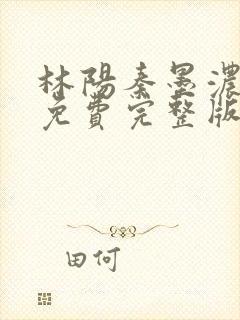 林陽秦墨濃
免費完整版
田何